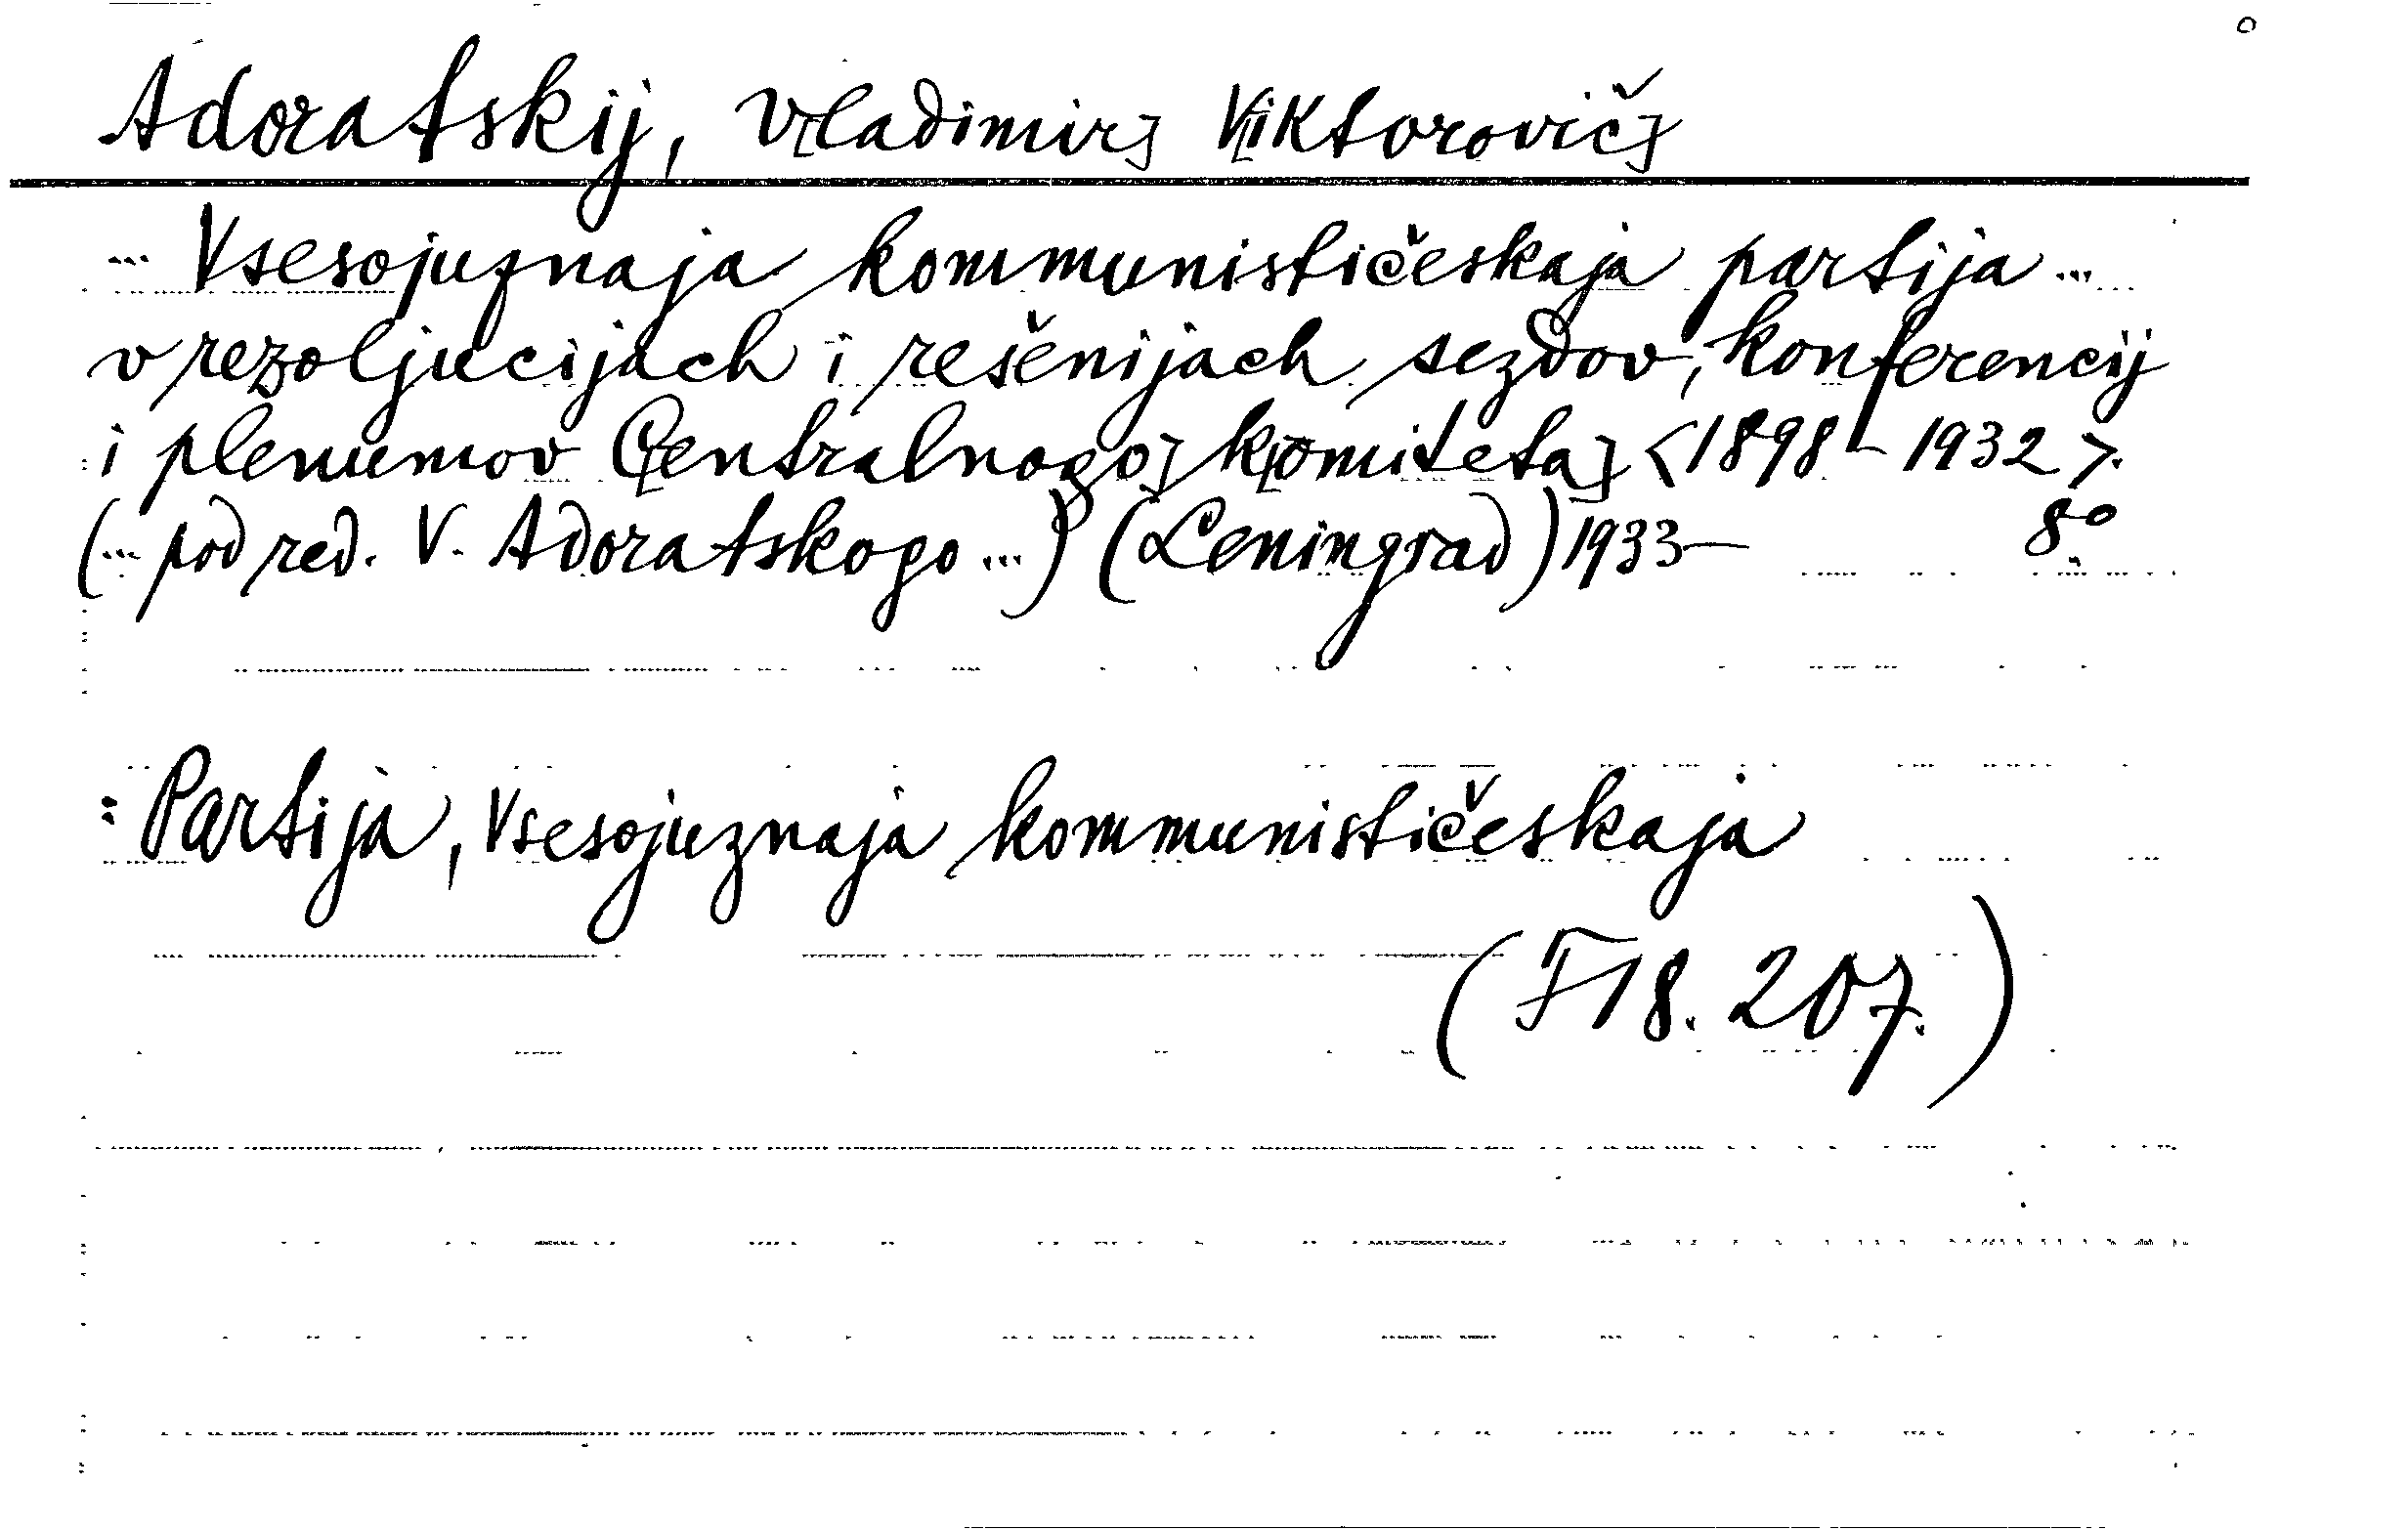 Adoratskij, V[ladimir] V[iktorovič]
... Vsesojuznaja kommunističeskaja partija ...
v rezoljucijach i rešenijach sezdov, konferencij
i plenumov C[entralnogo] k[omiteta] <1898-1932>.
(... pod red. V. Adoratskogo ...) (Leningrad) 1933— 8°.
: Partija, Vsesojuznaja kommunističeskaja
(F18.207.)